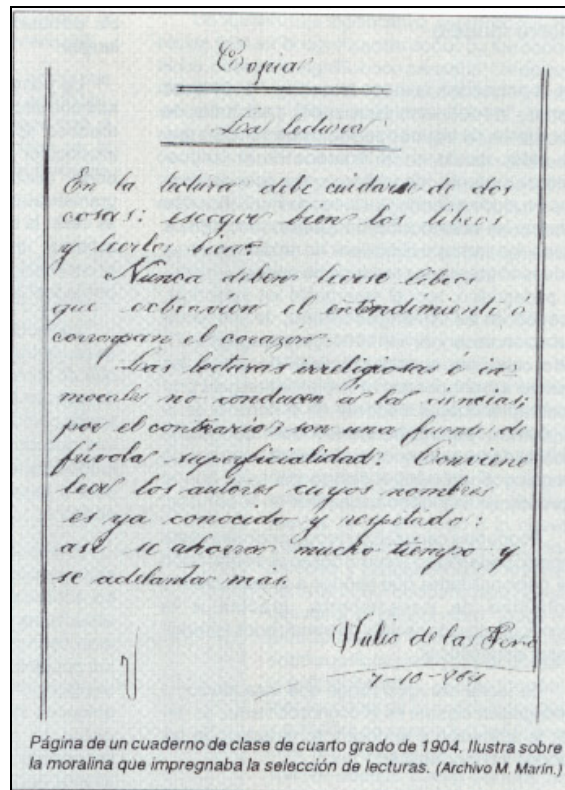 Copia
La lectura
En la lectura debe cuidarse de dos
cosas: escoger bien los libros
y leerlos bien.
Nunca deben leerse libros
que extravien el entendimiento ó
corrompan el corazon.
Las lecturas irreligiosas é in-
morales no conducen á la ciencias;
por el contrario, son una fuente de
frívola superficialidad. Conviene
leer los autores cuyos nombres
es ya conocido y respetado:
asi se ahorra mucho tiempo y
se adelanta más.
Julio de la
7-10-904
Página de un cuaderno de clase de cuarto grado de 1904. Ilustra sobre
la moralina que impregnaba la selección de lecturas. (Archivo M. Marín.)